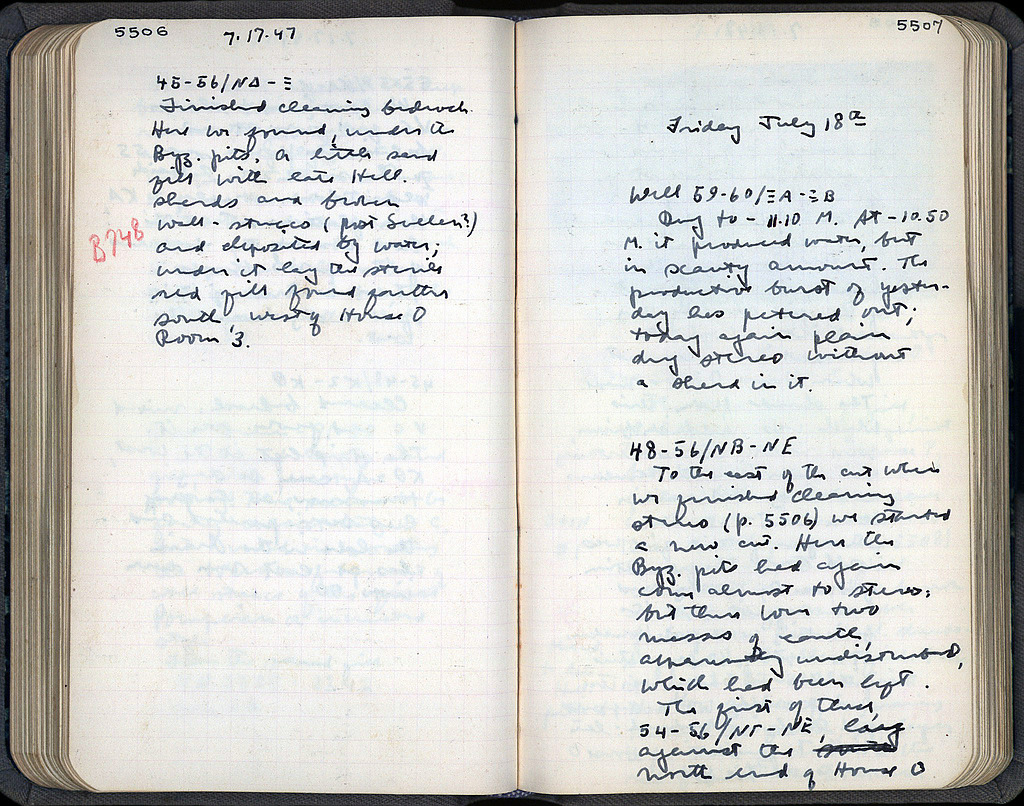 5506
7.17.47
45-56/ΝΔ-Ξ
Finished cleaning bedrock.
Here we found, under the
Byz. pits, a little sand
fill with late Hell.
sherds and broken
wall-stucco (post Sullan?)
and deposited by water;
under it lay the sterile
red fill found further
south, west of House O
Room 3.
B748
5507
Friday July 18th
Well 59-60/ΞA-ΞB
Dug to -11.10 M. At -10.50
M. it produced water, but
in scanty amount. The
productive burst of yester-
day has petered out;
today again plain
dry stereo without
a sherd in it.
48-56/NB-NE
To the east of the cut where
we finished cleaning
stereo (p. 5506) we started
a new cut. Here the
Byz. pits had again
come almost to stereo;
but there were two
masses of earth,
apparently undisturbed,
which had been left.
The first of these,
54-56/ΝΓ-ΝΕ, lay
against the
north end of House O